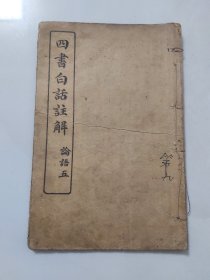 四書白話註解
論語五